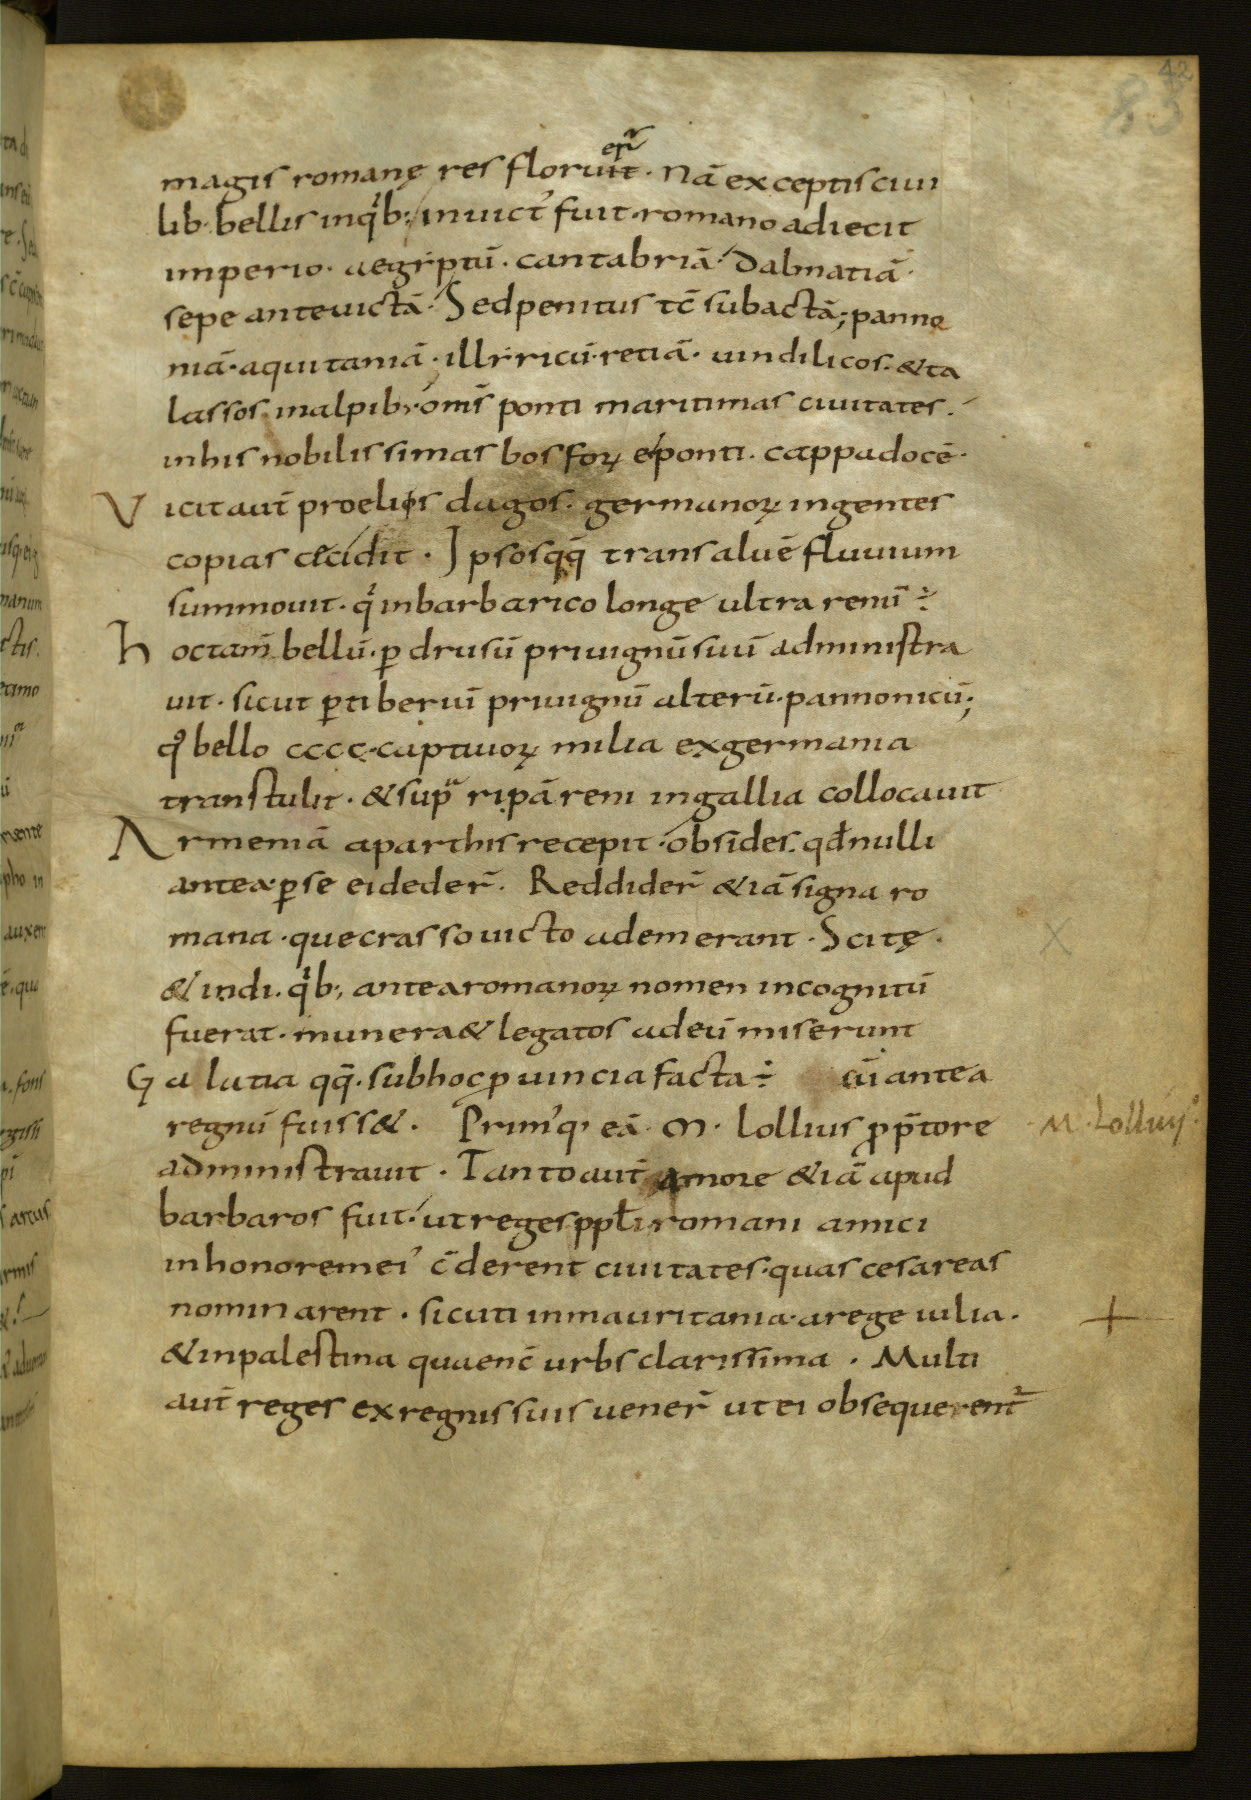 42
83
magis romanę res floruit er̄ . Nā exceptis ciui
lib· bellis inqͥb; inuictʼ fuit · romano adiecit
imperio · aegiptū · cantabriā · Dalmatiā ·
sepe ante uictā · Sed penitus tc̄ subactā; panno
niā · aquitaniā · illiricū · retiā · uindilicos · & ta
lassos inalpib; om̄s ponti maritimas ciuitates ·
inhis nobilissimas bosforꝝ eponti · cappadocē ·
Vicit aut̄ proeliis dagos · germanorꝝ ingentes
copias cecidit · Ipsosqq̄ trans aluē fluuium
summouit · qͥ inbarbarico longe ultra renū ÷
hoc tam̄ bellū · ꝑ drusū priuignū suū administra
uit · sicut ꝑ tiberiū priuignū alterū · pannonicū;
qͦ bello cccc · captiuorꝝ milia exgermania
transtulit · & supͣ ripā reni ingallia collocauit
Armeniā aparthis recepit · obsides · qđ nulli
antea ꝑse ei deder̄ · Reddider̄ & iā signa ro
mana · que crasso uicto ademerant · Scitę ·
& indi · qͥb; antea romanorꝝ nomen incognitū
fuerat · munera & legatos adeū miserunt
Galatia qq̄ · sub hoc ꝓuincia facta ÷ cū antea
regnū fuiss& · Primʼqʼ eā · M · lollius ꝓp̄tore
M · Lollius
administrauit · Tanto aut̄ amore & iā apud
barbaros fuit · ut reges ppłi romani amici
inhonorem eiʼ c̄derent ciuitates · quas cesareas
nominarent · sicuti inmauritania · arege iulia ·
& inpalestina quae nc̄ urbs clarissima · Multi
aut̄ reges ex regnis suis uener̄ ut ei obsequerent᷑